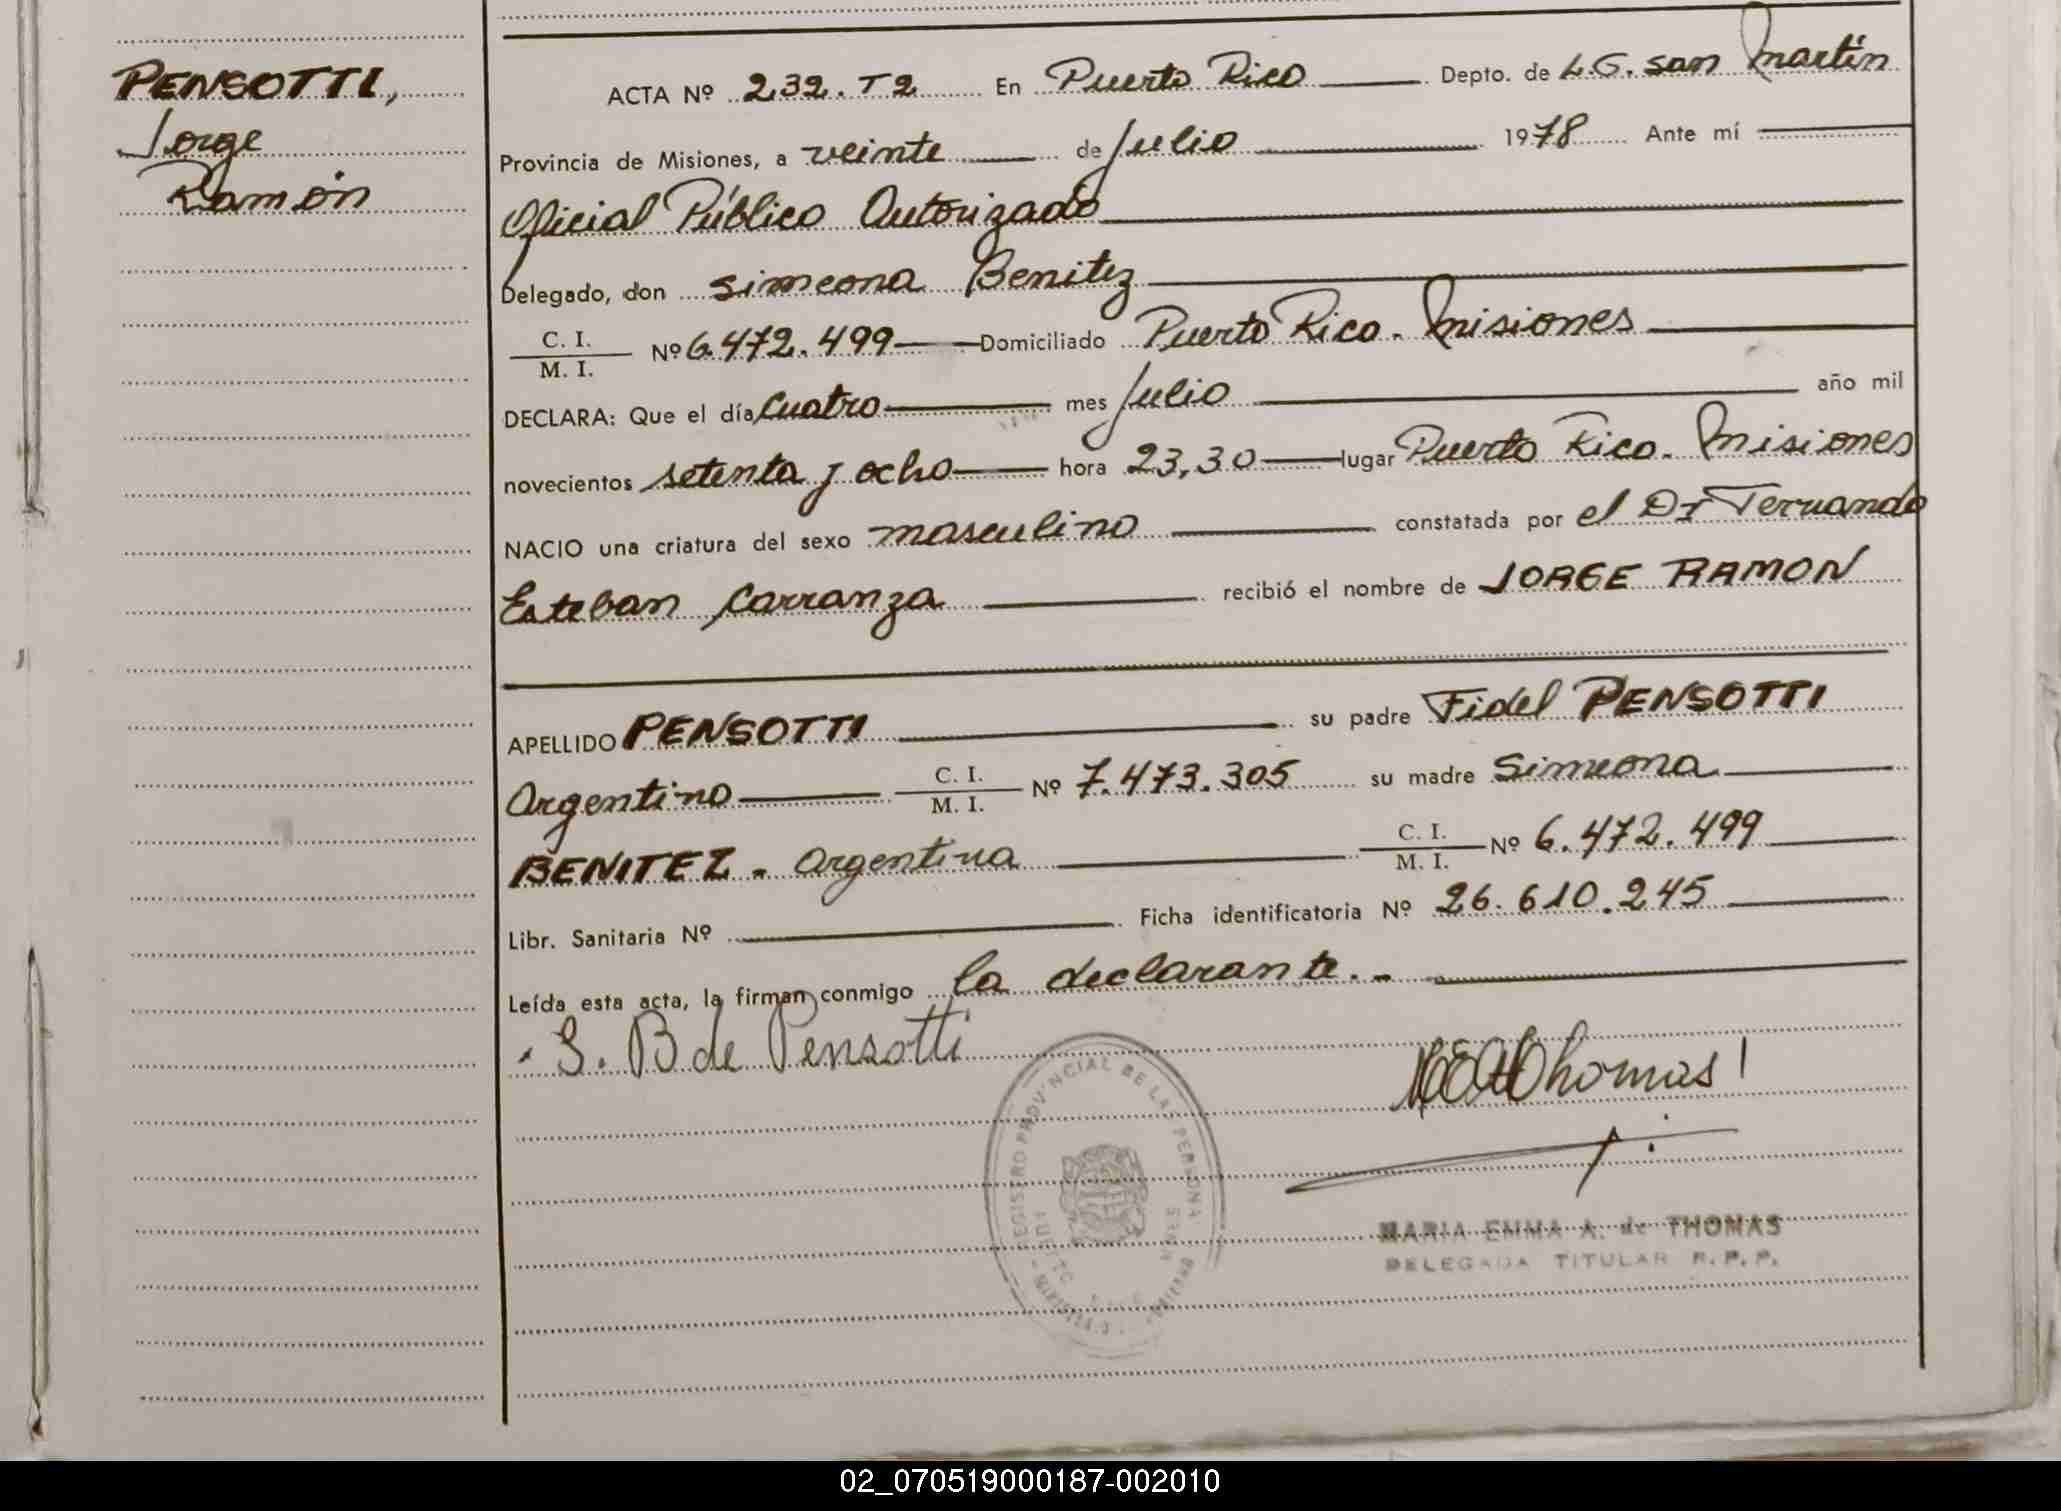 PENSOTTI,
Jorge
Ramón
ACTA Nº 232. T2 En Puerto Rico Depto. de L.G. san Martín
Provincia de Misiones, a veinte de Julio 1978 Ante mí
Oficial Público Autorizado
Delegado, don simeona Benitez
C. I.
M. I. Nº 6.472.499 Domiciliado Puerto Rico. Misiones
DECLARA: Que el día Cuatro mes Julio año mil
novecientos setenta y ocho hora 23,30 lugar Puerto Rico. Misiones
NACIO una criatura del sexo masculino constatada por el Dr Fernando
Esteban Carranza recibió el nombre de JORGE RAMON
APELLIDO PENSOTTI su padre Fidel PENSOTTI
Argentino C. I. M. I. Nº 7.473.305 su madre Simeona
BENITEZ - argentina C. I. M. I. Nº 6.472.499
Libr. Sanitaria Nº Ficha identificatoria Nº 26.610.245
Leída esta acta, la firman conmigo la declarante. -
S. B de Pensotti
REGISTRO PROVINCIAL DE LAS PERSONAS
MARIA EMMA A. de THOMAS
DELEGADA TITULAR R. P. P.
02_070519000187-002010